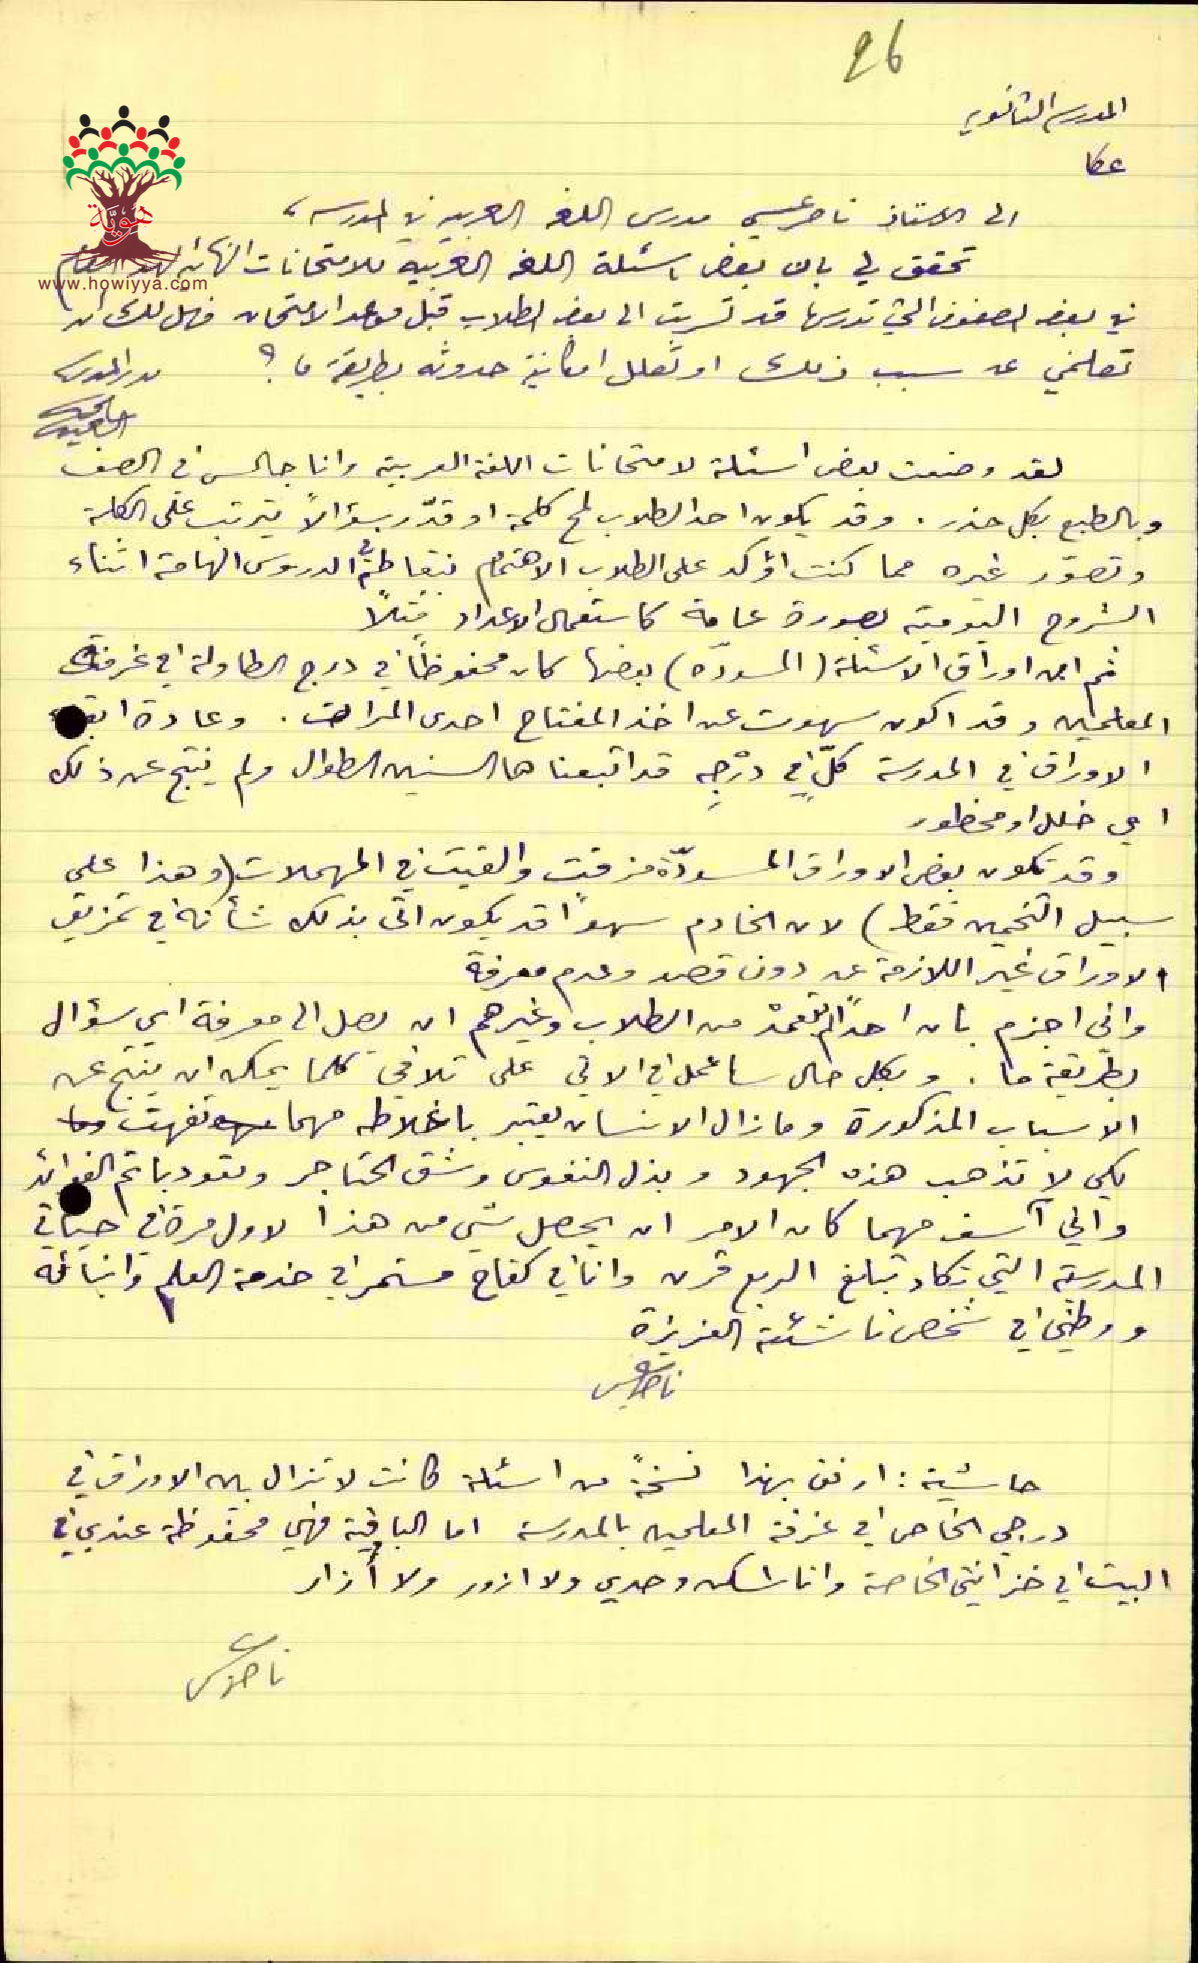 26
المدرسة الثانوية
عكا
هويّة
www.howiyya.com
الى الاستاذ ناصر عيسى مدرس اللغة العربية في المدرسة،
تحقق لي بان بعض اسئلة اللغة العربية للامتحانات النهائية لهذا العام
في بعض الصفوف التي تدرسها قد تسربت الى بعض الطلاب قبل موعد الامتحان فهل لك ان
تعلمني عن سبب ذلك او تعلل امكانية حدوثه بطريقة ما؟ مدير المدرسة
لقد وضعت بعض اسئلة لامتحانات اللغة العربية وانا جالس في الصف
وبالطبع بكل حذر. وقد يكون احد الطلاب لمح كلمة او قدّر سؤالاً يترتب على الكلمة
وتصوّر غيره مما كنت اؤكد على الطلاب الاهتمام بنقاطه في الدروس الهامة اثناء
الشروح اليومية بصورة عامة كاستعمال الاعداد مثلاً
ثم ان اوراق الاسئلة (المسودّه) بعضها كان محفوظاً في درج الطاولة في غرفة
المعلمين وقد اكون سهوت عن اخذ المفتاح احدى المرات. وعادة
الاوراق في المدرسة كلٌّ في دُرْجِهِ قد اتبعناها السنين الطوال ولم ينتج عن ذلك
اي خلل او محظور
وقد تكون بعض الاوراق المسودّة مزقت والقيت في المهملات (وهذا على
سبيل التخمين فقط) لان الخادم سهواً قد يكون اتى بذلك شأنه في تمزيق
الاوراق غير اللازمة عن دون قصد وعدم معرفة
واني اجزم بان احداً لم يتعمد من الطلاب وغيرهم ان يصل الى معرفة اي سؤال
بطريقة ما. وبكل حال ساعمل في الاتي على تلافي كلما يمكن ان ينتج عن
الاسباب المذكورة وما زال الانسان يعتبر باغلاطه مهما تفهت
لكي لا تذهب هذه الجهود وبذل النفوس وشق الحناجر وتعود باتم الفوائد
واني آسف مهما كان الامر ان يحصل شي من هذا لاول مرة في حياتي
المدرسية التي تكاد تبلغ الربع قرن وانا في كفاح مستمر في خدمة العلم وابنائه
ووطني في شخص ناشئته العزيزة
ناصر عيسى
حاشية: ارفق بهذا نسخةً من اسئلة كانت لا تزال بين الاوراق في
درجي الخاص في غرفة المعلمين بالمدرسة اما الباقية فهي محفوظة عندي في
البيت في خزانتي الخاصة وانا اسكن وحدي ولا ازور ولا أُزار
ناصر عيسى